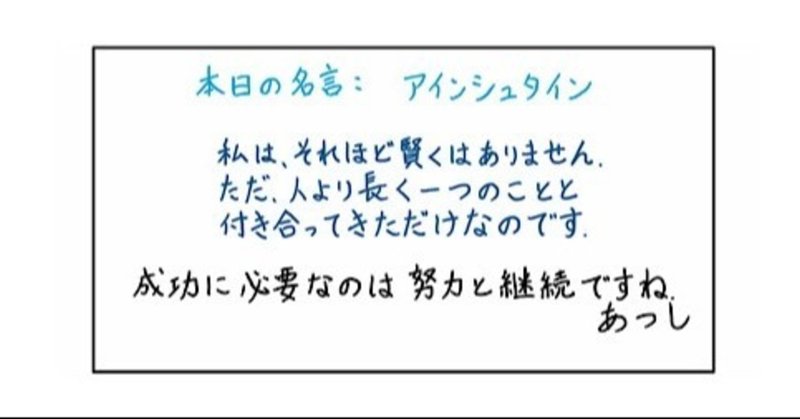 本日の名言： アインシュタイン
私は、それほど賢くはありません.
ただ、人より長く一つのことと
付き合ってきただけなのです.
成功に必要なのは努力と継続ですね.
あつし